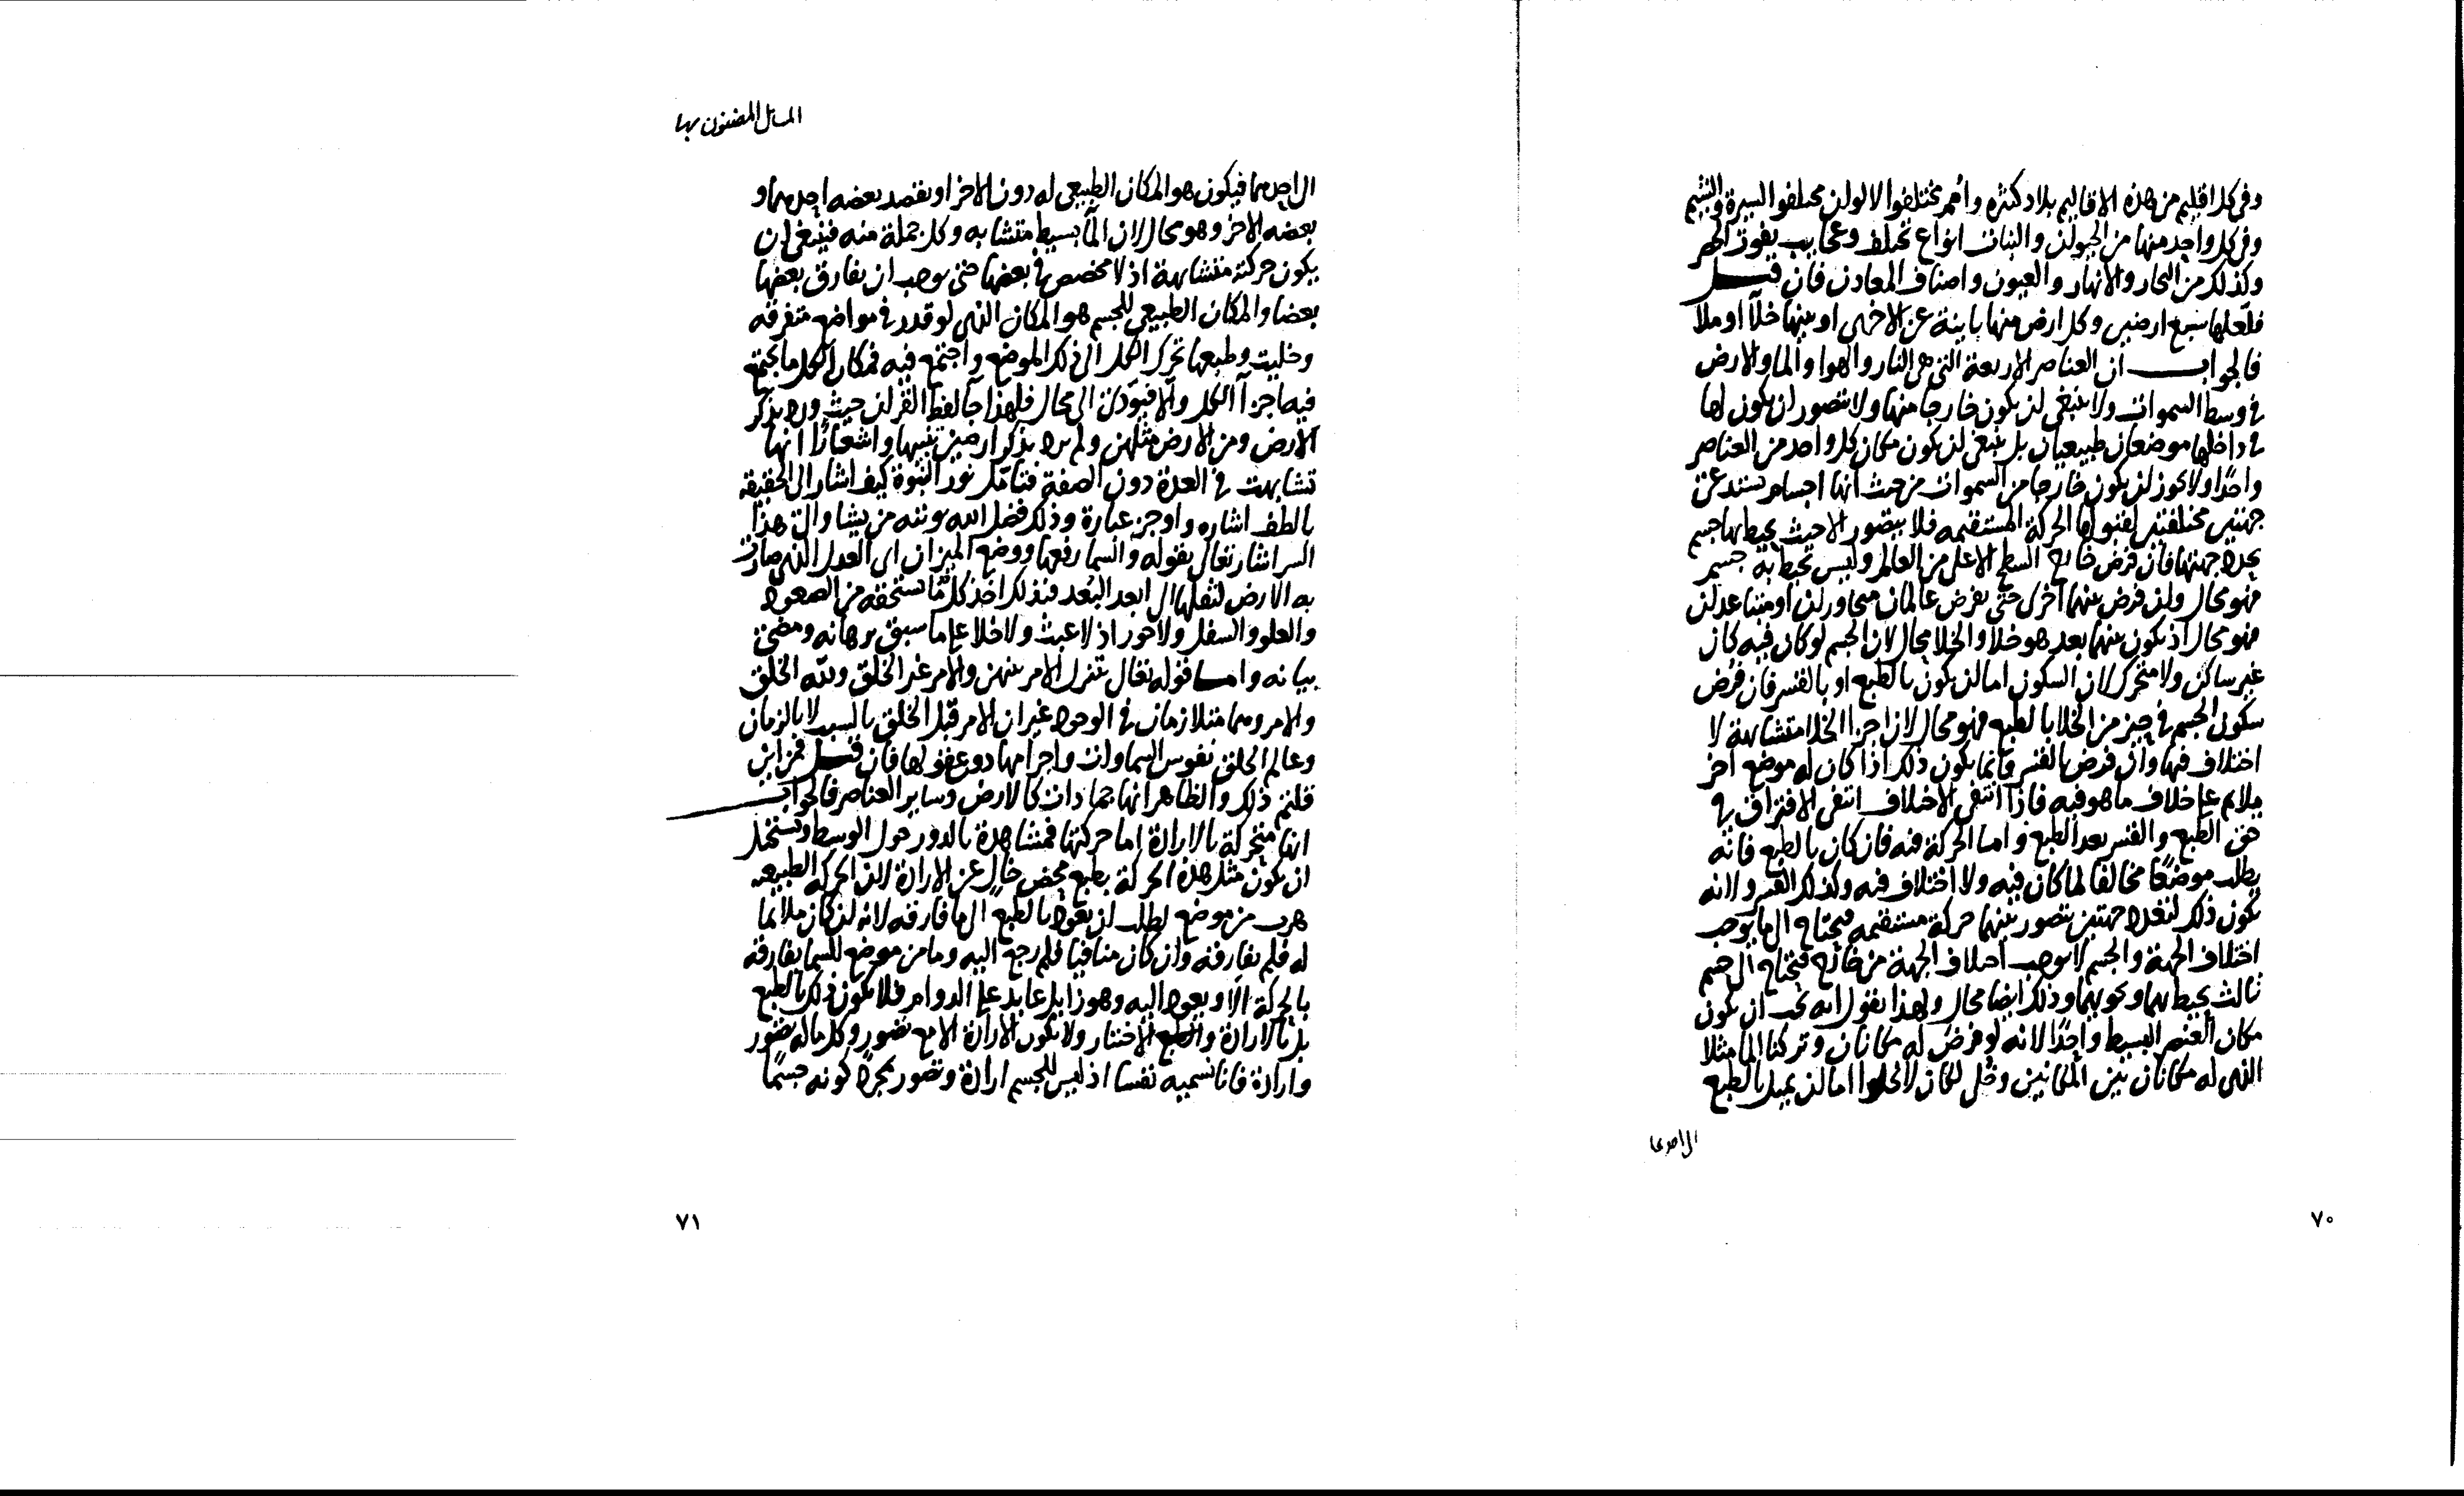 وفي كل اقليم من هذه الاقاليم بلاد كثيره وامم مختلفوا الالوان مختلفو السيرة والشيم
وفي كل واحد منها من الحيوان والنبات انواع تختلف وعجايب يفوت الحصر
وكذلك من البحار والانهار والعيون واصناف المعادن فان قيل
فلعلها سبع ارضين وكل ارض منها باينة عن الاخرى او بينها خلآ او ملا
فالجواب ان العناصر الاربعة التي هي النار والهوا والما والارض
في وسط السموات ولا ينبغي ان يكون خارجا منها ولا يتصور ان يكون لها
في داخلها موضعان طبيعيان بل ينبغي ان يكون مكان كل واحد من العناصر
واحدا ولا يجوز ان يكون خارجا من السموات من حيث انها اجسام تستدعي
جهتين مختلفتين لقبولها الحركة المستقيمه فلا يتصور الا حيث يحيط بها جسم
يحدد جهتها فان فرض خارج السطح الاعلى من العالم وليس يحيط به جسم
فهو محال وان فرض بينهما اخرى حتى يفرض عالمان متجاوران او متباعدان
فهو محال اذ يكون بينهما بعد هو خلا والخلا محال لان الجسم لو كان فيه كان
غير ساكن ولا متحرك لان السكون اما ان يكون بالطبع او بالقسر فان فرض
سكون الجسم في حيز من الخلا بالطبع فهو محال لان اجزا الخلا متشابهة لا
اختلاف فيها وان فرض بالقسر فانما يكون ذلك اذا كان له موضع اخر
ملايم على خلاف ما هو فيه فاذا انتفى الاختلاف انتفى الافتراق في
حق الطبع والقسر بعد الطبع واما الحركة فيه فان كان بالطبع فانه
يطلب موضعا مخالفا لما كان فيه ولا اختلاف فيه وكذلك القسر ولانه
يكون ذلك لتعدد جهتين يتصور بينهما حركة مستقيمه فيحتاج الى ما يوجب
اختلاف الجهة والجسم لا يوجب اختلاف الجهة من خارج فيحتاج الى جسم
ثالث يحيط بهما ويحويهما وذلك ايضا محال ولهذا نقول انه يجب ان يكون
مكان العنصر البسيط واحدا لانه لو فرض له مكانان وتركنا الما مثلا
الذي له مكانان بين المكانين وخلى لكان لا يخلوا اما ان يميل بالطبع
الى احدهما
٧٠
المسائل المضنون بها
الى احدهما فيكون هو المكان الطبيعي له دون الاخر او يقصد بعضه احدهما و
بعضه الاخر وهو محال لان المآ بسيط متشابه وكل جملة منه فينبغي ان
يكون حركته متشابهة اذ لا مخصص في بعضها حتى يوجب ان يفارق بعضها
بعضا والمكان الطبيعي للجسم هو المكان الذي لو قدر في مواضع متفرقه
وخليت وطبعها تحرك الكل الى ذلك الموضع واجتمع فيه فمكان الكل ما يجتمع
فيه اجزآ الكل والا فيؤدي الى محال فلهذا جآ لفظ القران حيث ورد بذكر
الارض ومن الارض مثلهن ولم يرد بذكر ارضين تنبيها واشعارا انها
تشابهت في العدة دون الصفة فتأمل نور النبوة كيف اشار الى الحقيقه
بالطف اشاره واوجز عبارة وذلك فضل الله يوتيه من يشا والى هذا
السر اشار تعالى بقوله والسما رفعها ووضع الميزان اي العدل الذي صارت
به الارض لثقلها الى ابعد البعد فبذلك اخذ كل ما يستحقه من الصعود
والعلو والسفل ولا جور اذ لا عبث ولا خلا على ما سبق برهانه ومضى
بيانه واما قوله تعالى يتنزل الامر بينهن والامر غير الخلق ولله الخلق
والامر وهما متلازمان في الوجود غير ان الامر قبل الخلق بالسبب لا بالزمان
وعالم الخلق نفوس السماوات واجرامها دون عقولها فان قيل فمن اين
قلتم ذلك والظاهر انها جمادات كالارض وساير العناصر فالجواب
انها متحركة بالارادة اما حركتها فمشاهدة بالدور حول الوسط ويستحيل
ان يكون مثل هذه الحركة بطبع محض خال عن الارادة لان الحركة الطبيعيه
هرب من موضع لطلب ان يعود بالطبع الى ما فارقه لانه ان كان ملائما
له فلم يفارقه وان كان منافيا فلم رجع اليه وما من موضع للسما يفارقه
بالحركة الا ويعود اليه وهو زايل عايد على الدوام فلا يكون ذلك بالطبع
بل بالارادة والاختيار ولا يكون الارادة الا مع تصور وكل ما له تصور
وارادة فانا نسميه نفسا اذ ليس للجسم ارادة وتصور بمجرد كونه جسما
٧١